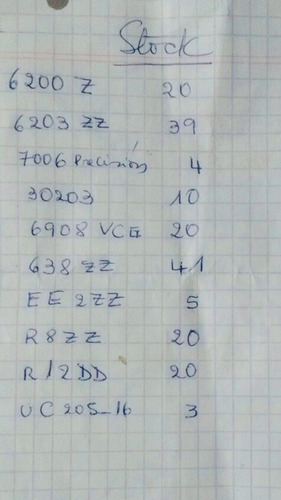 Stock
6200 Z 20
6203 ZZ 39
7006 Precisión 4
30203 10
6908 VCG 20
638 ZZ 41
EE 2ZZ 5
R8ZZ 20
R12DD 20
UC 205-16 3